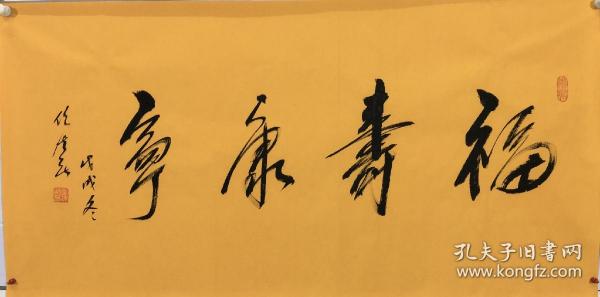 福壽康寧
戊戌冬
孔夫子旧書网
www.kongfz.com